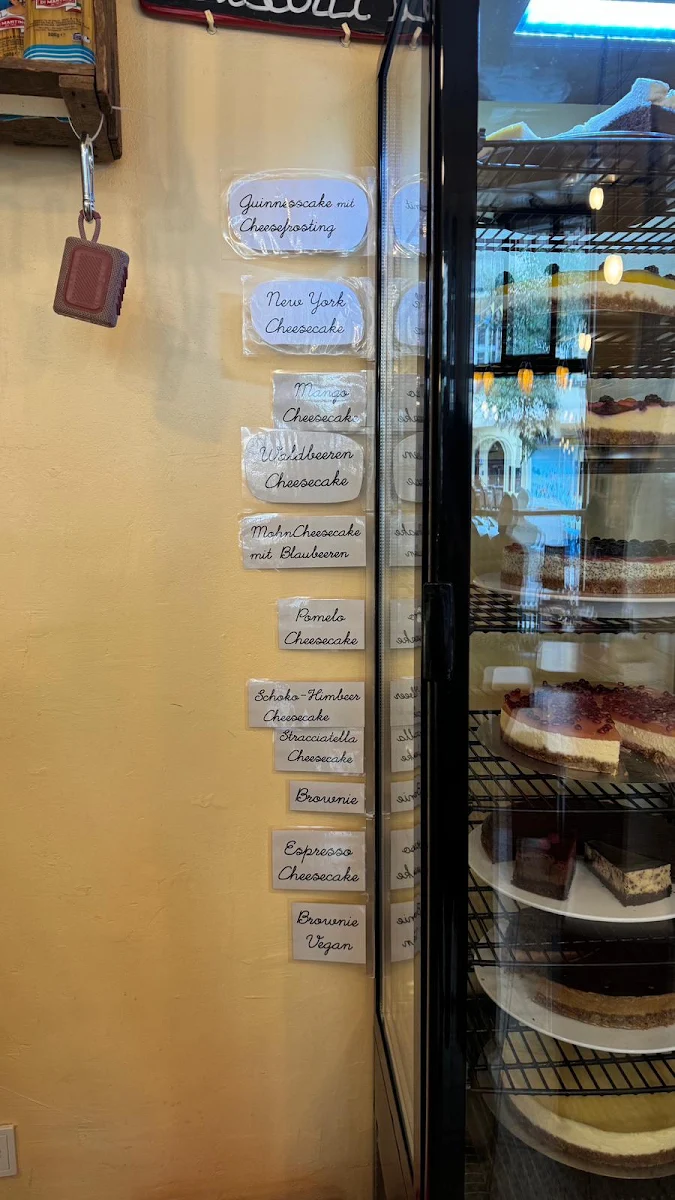 DI MARTINO
Guinnesscake mit
Cheesefrosting
New York
Cheesecake
Mango
Cheesecake
Waldbeeren
Cheesecake
MohnCheesecake
mit Blaubeeren
Pomelo
Cheesecake
Schoko-Himbeer
Cheesecake
Stracciatella
Cheesecake
Brownie
Espresso
Cheesecake
Brownie
Vegan